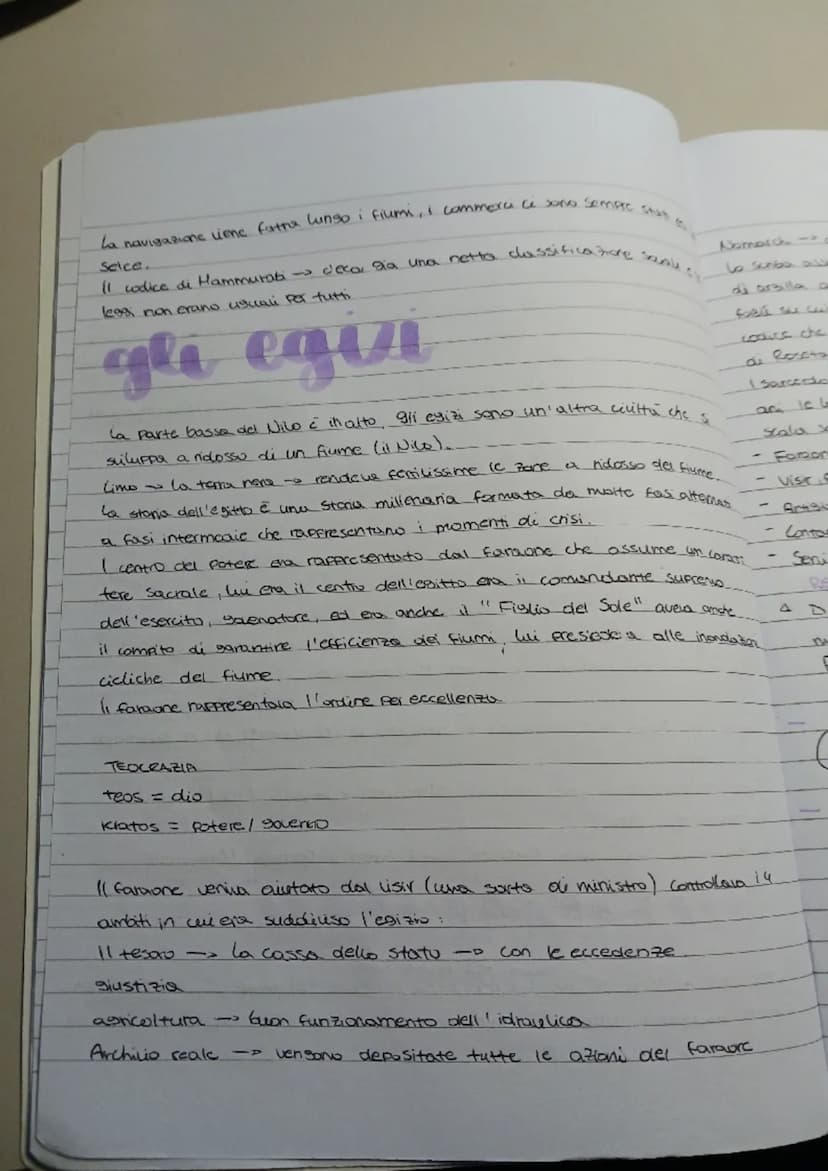 La navigazione viene fatta lungo i fiumi, i commerci ci sono sempre stati
selce.
Il codice di Hammurabi → c'era già una netta classificazione
leggi non erano uguali per tutti
gli egizi
La parte bassa del Nilo è in alto, gli egizi sono un'altra civiltà che s
viluppa a ridosso di un fiume (il Nilo).
Limo → la terra nera → rendeva fertilissime le zone a ridosso del fiume.
La storia dell'egitto è una storia millenaria formata da molte fasi alternate
a fasi intermedie che rappresentano i momenti di crisi.
I centro del potere era rappresentato dal faraone che assume un carat
tere sacrale, lui era il centro dell'egitto era il comandante supremo
dell'esercito, governatore, ed era anche il "Figlio del Sole" aveva anche
il compito di garantire l'efficienza dei fiumi, lui presiedeva alle inondazioni
cicliche del fiume.
Il faraone rappresentava l'ordine per eccellenza
TEOCRAZIA
teos = dio
Kratos = potere/governo
Il faraone veniva aiutato dal visir (una sorta di ministro) controllava i 4
ambiti in cui era suddiviso l'egizio:
Il tesoro → la cassa dello stato → con le eccedenze
giustizia
agricoltura → buon funzionamento dell'idraulica
Archivio reale → vengono depositate tutte le azioni del faraone
Nomarchi →
di argilla
codice che
di
scala